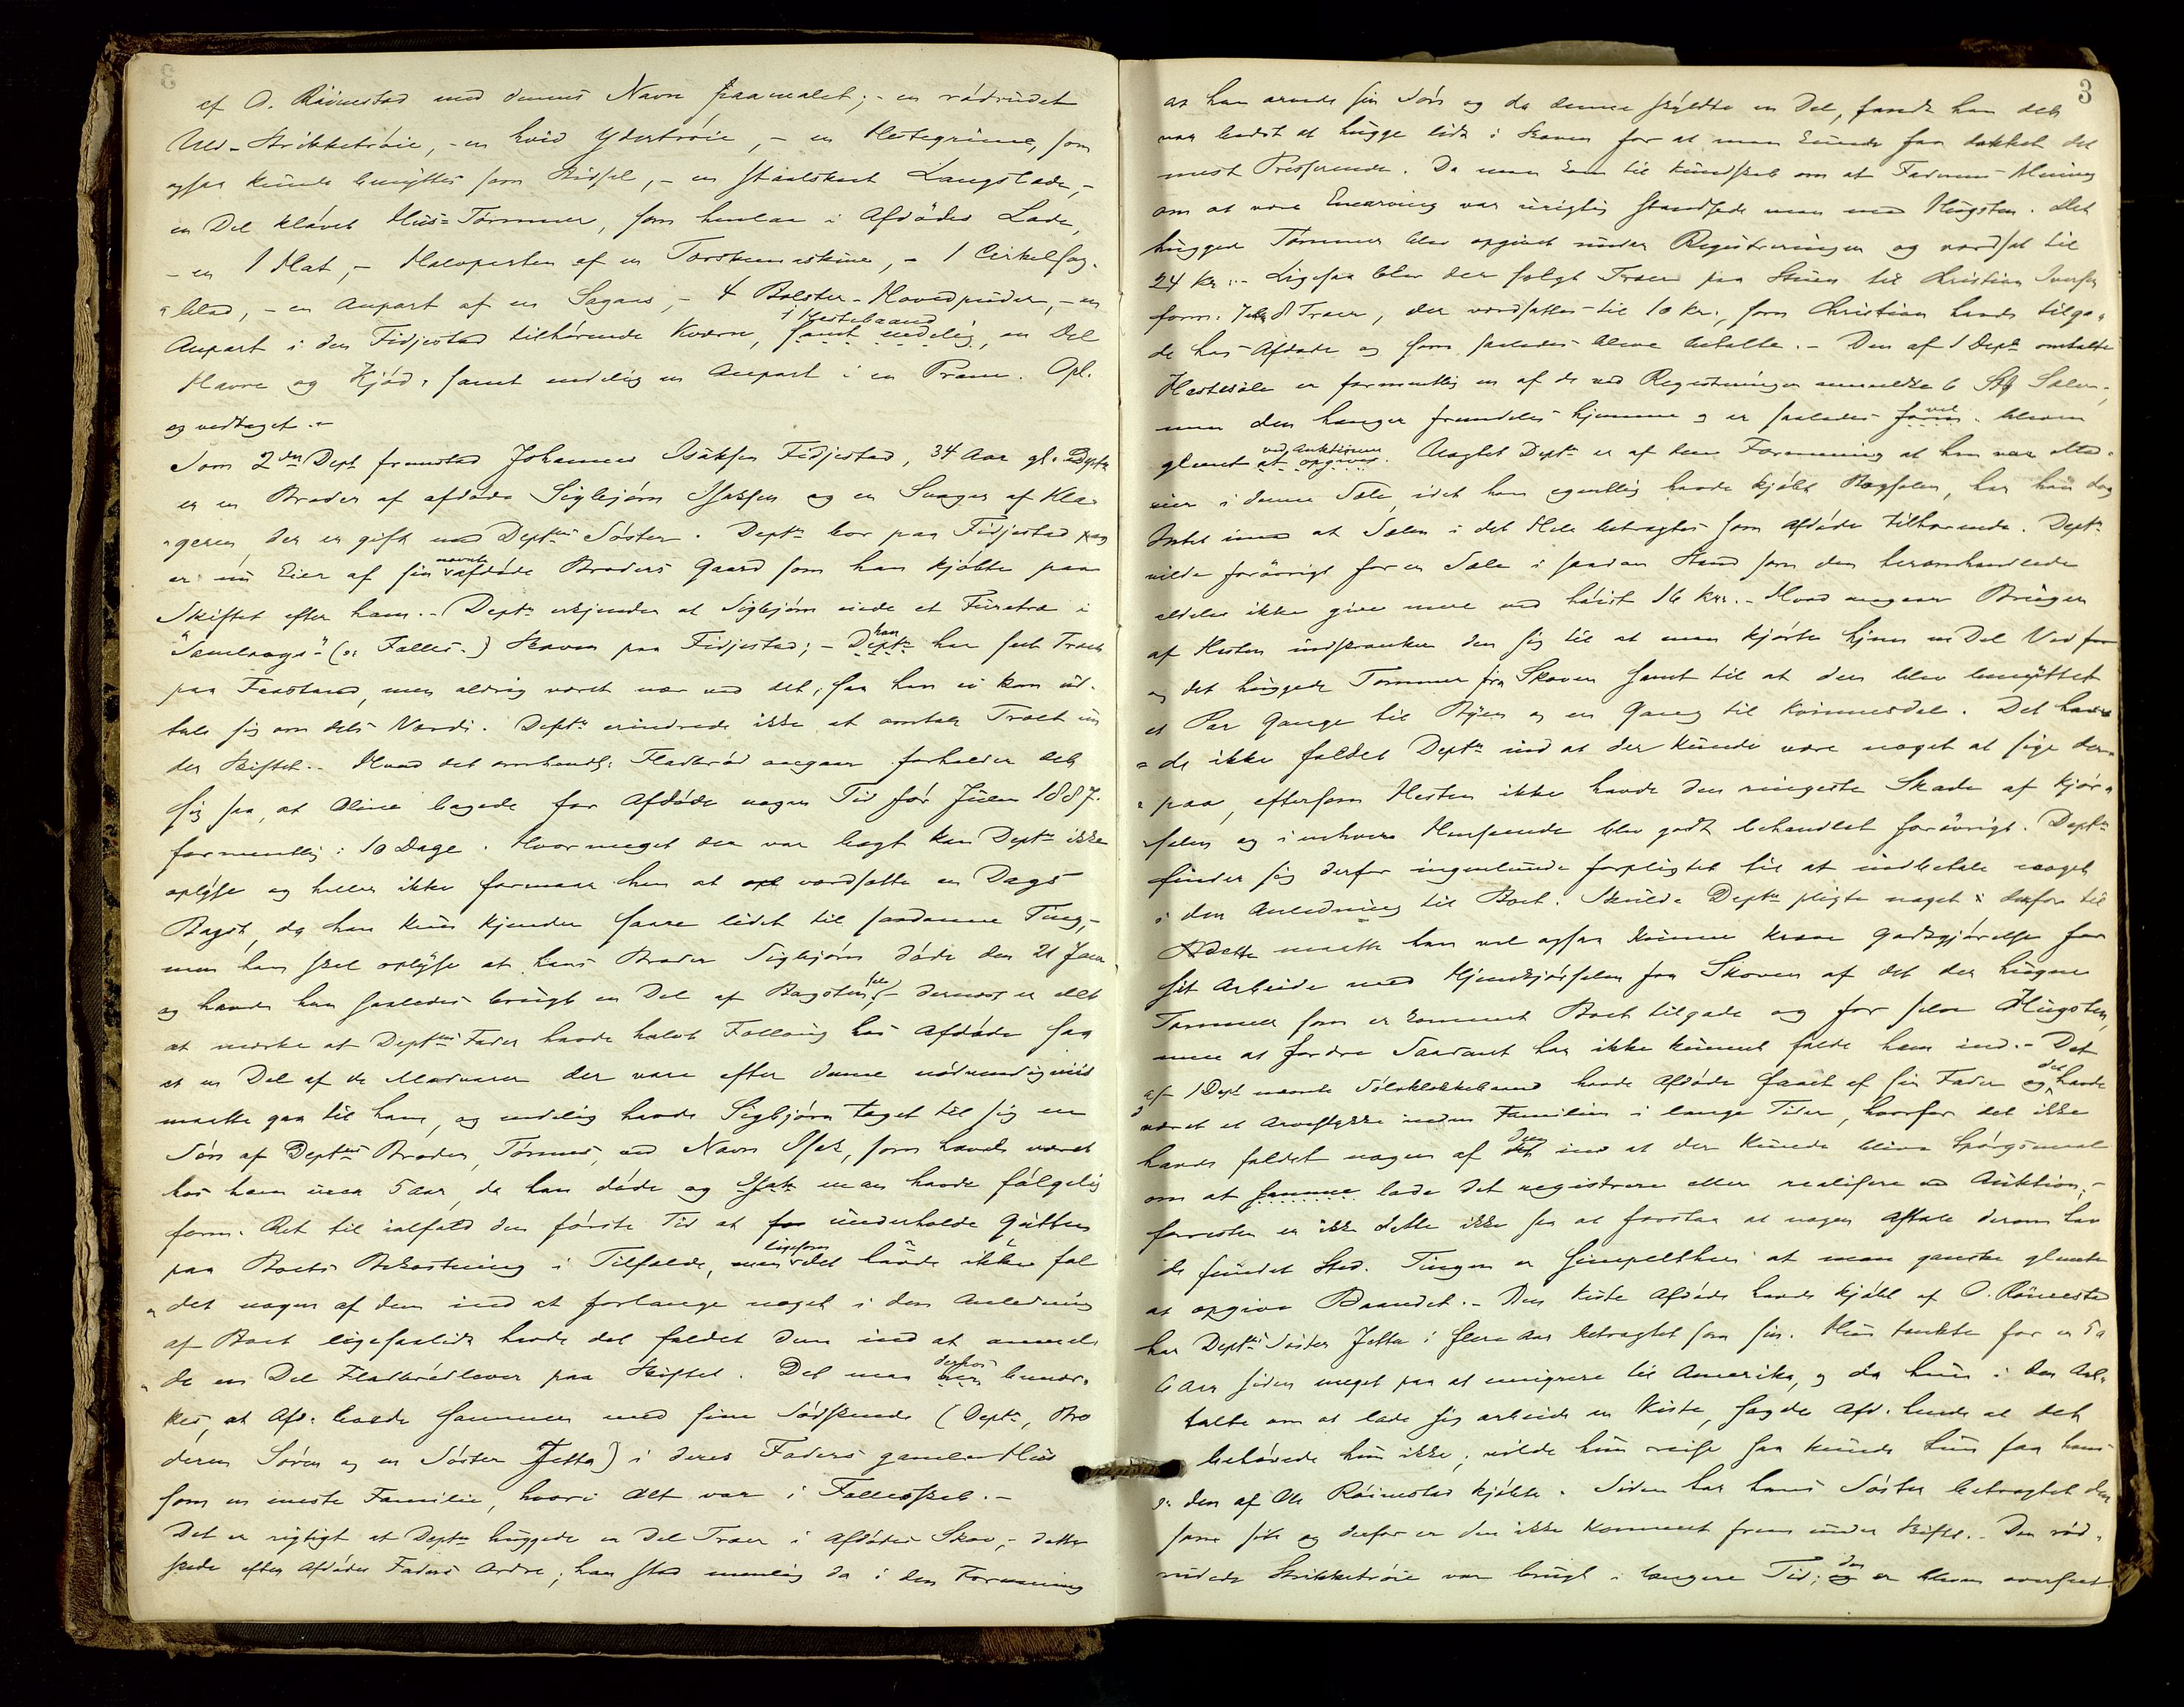 af O. Röinestad med dennes Navn paamalet; - en rödrudet
Uld-Strikketröie, - en hvid Ydertröie, - en Hestegrime, som
ogsaa kunde benyttes som Bidsel, - en staalskaet Langslæde, -
en Del klövet Hus-Tömmer, som henlaa i Afdödes Lade,
- en 1 Hat, - Halvparten af en Tærskemaskine, - 1 Cirkelsag-
"blad, - en Anpart af en Sagaas, - 4 Bolster-Hovedpuder, - en
Anpart i den Fidjestad tilhörende Kværn, samt endelig, en Del
1 Hestebaand
Havre og Kjöd, samt endelig en Anpart i en Pram. Opl.
og vedtaget. -
Som 2den Dept fremstod Johannes Isaksen Fidjestad, 34 Aar gl. Deptn
er en Broder af afdöde Sigbjörn Isaksen og en Svoger af Kla-
"geren, der er gift med Deptens Söster. Deptn bor paa Fidjestad og
er nu Eier af sin nævnte afdöde Broders Gaard som han kjöbte paa
Skiftet efter ham. - Deptn erkjender at Sigbjörn eiede et Furetræ i
"Samlaags" (: Fælles-) Skoven paa Fidjestad; - Deptn han har seet Træet
paa Frastand, men aldrig været nær ved det, saa han ei kan ud-
tale sig om dets Værdi. Deptn erindrede ikke at omtale Træet un
der Skiftet. - Hvad det omhandl. Fladbröd angaar forholder det
sig saa, at Aline bagede for Afdöde nogen Tid för Julen 1887.
formentlig i 10 Dage. Hvormeget der var bagt kan Deptn ikke
oplyse og heller ikke formaar han at opl værdsætte en Dags
Bagst, da han kun kjender saare lidet til saadanne Ting, -
men han skal oplyse at hans Broder Sigbjörn döde den 21 Jan
og havde han saaledes brugt en Del af Bagsten, - dernæst er det
at mærke at Deptens Fader havde halvt Föllaug hos Afdöde saa
at en Del af de Madvarer der vare efter denne nödvendigviis
maatte gaa til ham, og endelig havde Sigbjörn taget til sig en
Sön af Deptens Broder, Tönnes, ved Navn Isak, som havde været
hos ham circa 5 Aar, da han döde og Isak man havde fölgelig
form. Ret til ialfald den förste Tid at for underholde Gutten
paa Boets Bekostning i Tilfælde, men ligesom det havde ikke fal
"det nogen af dem ind at forlange noget i den Anledning
af Boet ligesaalidt havde det faldet dem ind at anmel-
"de en Del Fladbrödlever paa Skiftet. Det maa derhos bemær-
kes, at Afd. levede sammen med sine Södskende (Deptn, Bro
deren Sören og en Söster Jetta) i deres Faders gamle Hus
som en eneste Familie, hvori Alt var i Fællesskab. -
Det er rigtigt at Deptn huggede en Del Træer i Afdödes Skov, - dette
skede efter Afdödes Faders Ordre; han stod nemlig da i den Formening
3
at han arvede sin Sön og da denne skyldte en Del, fandt han det
var bedst at hugge lidt i Skoven for at man kunde faa dækket det
mest Presserende. Da man kom til Kundskab om at Faderens Mening
om at være Enearving var urigtig standsede man med Hugsten. Det
huggede Tömmer blev opgivet under Registreringen og værdsat til
24 Kr. - Ligesaa blev der solgt Træer paa Stuen til Christian Iversen
form. 7 eller 8 Træer, der værdsattes til 10 Kr., som Christian havde tilgo-
de hos Afdöde og som saaledes bleve betalte. - Den af 1 Dept omtalte
Hestesæle er formentlig en af de ved Registreringen anmeldte 6 Stk Sæler,
men den hænger fremdeles hjemme og er saaledes vel bleven
glemt ved Auktionen at opgives. Uagtet Deptn er af den Formening at han var Med-
eier i denne Sæle, idet han egentlig havde kjöbt Bogsælen, har han dog
Intet imod at Sælen i det Hele betragtes som Afdöde tilhörende. Deptn
vilde forövrigt for en Sæle i saadan Stand som den heromhandlede
aldeles ikke give mere end höist 16 Kr. - Hvad angaar Brugen
af Hesten indskrænker den sig til at man kjörte hjem en Del Ved
og det huggede Tömmer fra Skoven samt til at den blev benyttet
et Par Gange til Byen og en Gang til Kvinesdal. Det hav-
"de ikke faldet Deptn ind at der kunde være noget at sige der-
"paa, eftersom Hesten ikke havde den ringeste Skade af Kjör-
"selen og i enhver Henseende blev godt behandlet forövrigt. Deptn
finder sig derfor ingenlunde forpligtet til at indbetale noget
i den Anledning til Boet. Skulde Deptn pligte noget derfor til
dette maatte han vel ogsaa kunne kræve Godtgjörelse for
sit Arbeide med Hjemkjörselen fra Skoven af det der hugne
Tömmer som er kommet Boet tilgode og for selve Hugsten,
men at fordre Saadant har ikke kunnet falde ham ind. - Det
af 1 Dept nævnte Sölvklokkebaand havde Afdöde faaet af sin Fader og det havde
været et Arvestykke inden Familien i lange Tider, hvorfor det ikke
havde faldet nogen af dem ind at der kunde blive Spörgsmaal
om at samme lade det registrere eller realisere ved Auktion; -
forresten er ikke dette ikke saa at forstaa at nogen Aftale derom hav
de fundet Sted. Tingen er simpelthen at man ganske glemte
at opgive Baandet. - Den Kiste Afdöde havde kjöbt af O. Röinestad
har Deptns Söster Jetta i flere Aar betragtet som sin. Hun tænkte for en 5 a
6 Aar siden meget paa at emigrere til Amerika, og da hun i den Anl.
talte om at lade sig arbeide en Kiste, sagde Afd. hende at det
behövede hun ikke; vilde hun reise saa kunde hun faa hans
den af Ole Röinestad kjöbte. Siden har hans Söster betragtet den
som sin og derfor er den ikke kommet frem under Skiftet. - Den röd-
rudede Strikketröie var brugt i længere Tid; den er bleven overseet